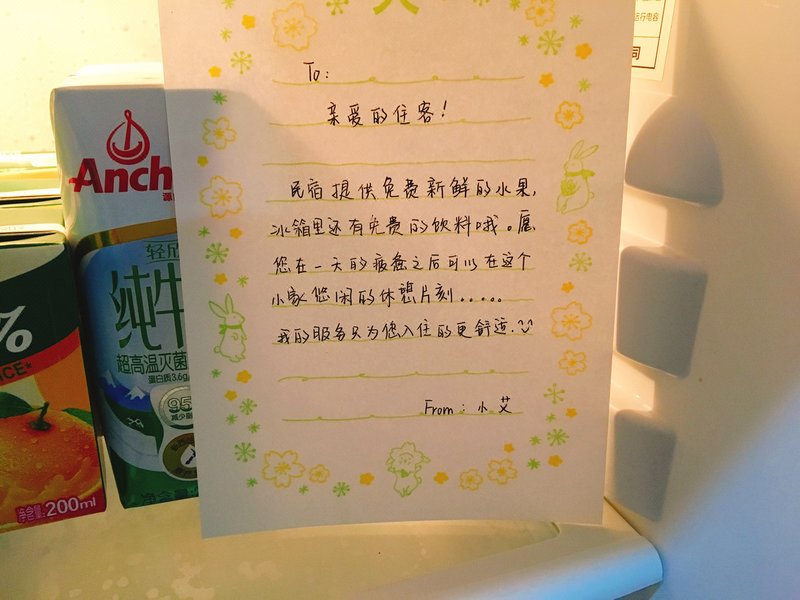 To:
亲爱的住客!
民宿提供免费新鲜的水果,
冰箱里还有免费的饮料哦。愿
您在一天的疲惫之后可以在这个
小家悠闲的休憩片刻.....
我的服务只为您入住的更舒适.
From: 小艾
Anch
轻欣
纯牛
超高温灭菌
蛋白质3.6g
95
减少脂
净含量
%
ICE*
净含量:200ml
运行电容
司